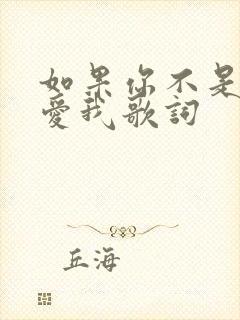 如果你不是
愛我歌詞
丘海